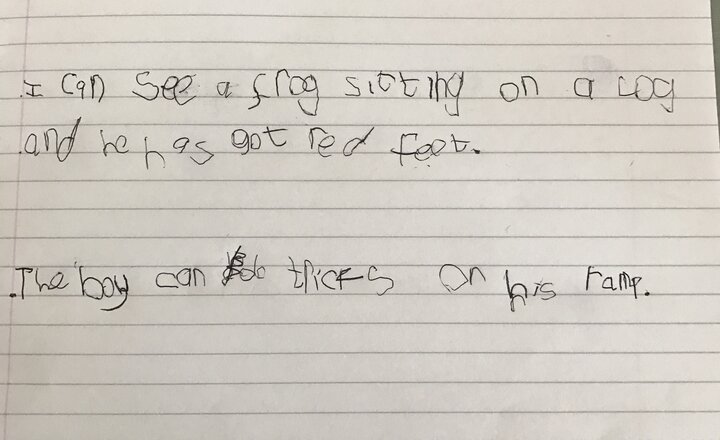 .I can see a frog sitting on a log
.and he has got red feet.
.The boy can do tricks on his ramp.